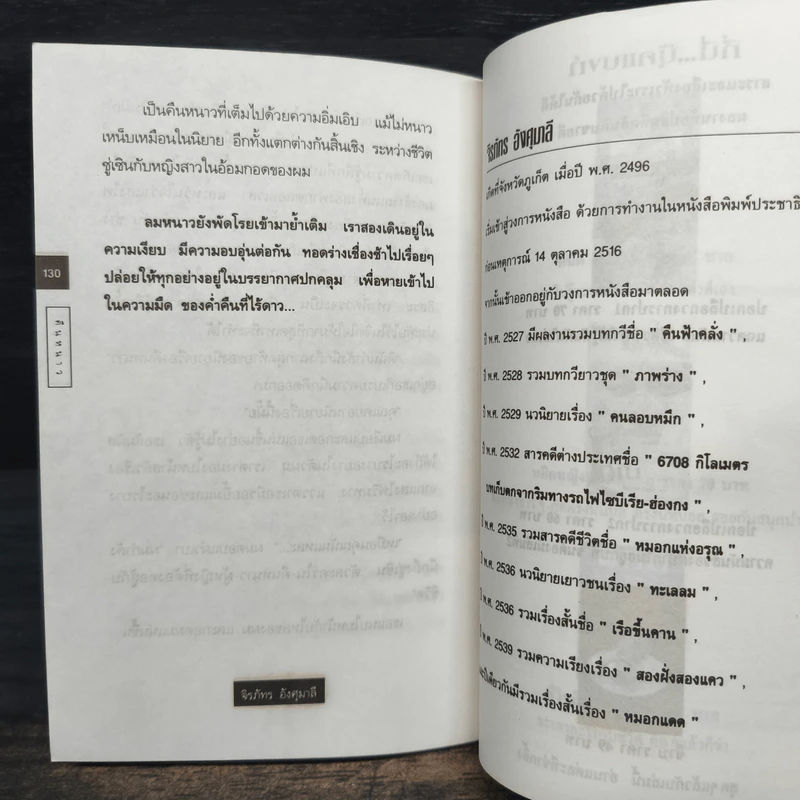 เป็นคืนหนาวที่เต็มไปด้วยความอิ่มเอิบ แม้ไม่หนาว
เหน็บเหมือนในนิยาย อีกทั้งแตกต่างกันสิ้นเชิง ระหว่างชีวิต
ซู่เซินกับหญิงสาวในอ้อมกอดของผม
ลมหนาวยังพัดโรยเข้ามาย้ำเติม เราสองเดินอยู่ใน
ความเงียบ มีความอบอุ่นต่อกัน ทอดร่างเชื่องช้าไปเรื่อยๆ
ปล่อยให้ทุกอย่างอยู่ในบรรยากาศปกคลุม เพื่อหายเข้าไป
ในความมืด ของค่ำคืนที่ไร้ดาว...
130
คืนหนาว
จิรภัทร อังศุมาลี
จิรภัทร อังศุมาลี
เกิดที่จังหวัดภูเก็ต เมื่อปี พ.ศ. 2496
เริ่มเข้าสู่วงการหนังสือ ด้วยการทำงานในหนังสือพิมพ์ประชาธิ
ก่อนเหตุการณ์ 14 ตุลาคม 2516
จากนั้นเข้าออกอยู่กับวงการหนังสือมาตลอด
ปี พ.ศ. 2527 มีผลงานรวมบทกวีชื่อ " คืนฟ้าคลั่ง " ,
ปี พ.ศ. 2528 รวมบทกวียาวชุด " ภาพร่าง " ,
ปี พ.ศ. 2529 นวนิยายเรื่อง " คนลอบหมึก " ,
ปี พ.ศ. 2532 สารคดีต่างประเทศชื่อ " 6708 กิโลเมตร
บทเก็บตกจากริมทางรถไฟไซบีเรีย-ฮ่องกง " ,
ปี พ.ศ. 2535 รวมสารคดีชีวิตชื่อ " หมอกแห่งอรุณ " ,
ปี พ.ศ. 2536 นวนิยายเยาวชนเรื่อง " ทะเลลม " ,
ปี พ.ศ. 2536 รวมเรื่องสั้นชื่อ " เรือขึ้นคาน " ,
ปี พ.ศ. 2539 รวมความเรียงเรื่อง " สองฝั่งสองแคว " ,
และปีเดียวกันมีรวมเรื่องสั้นเรื่อง " หมอกแดด "